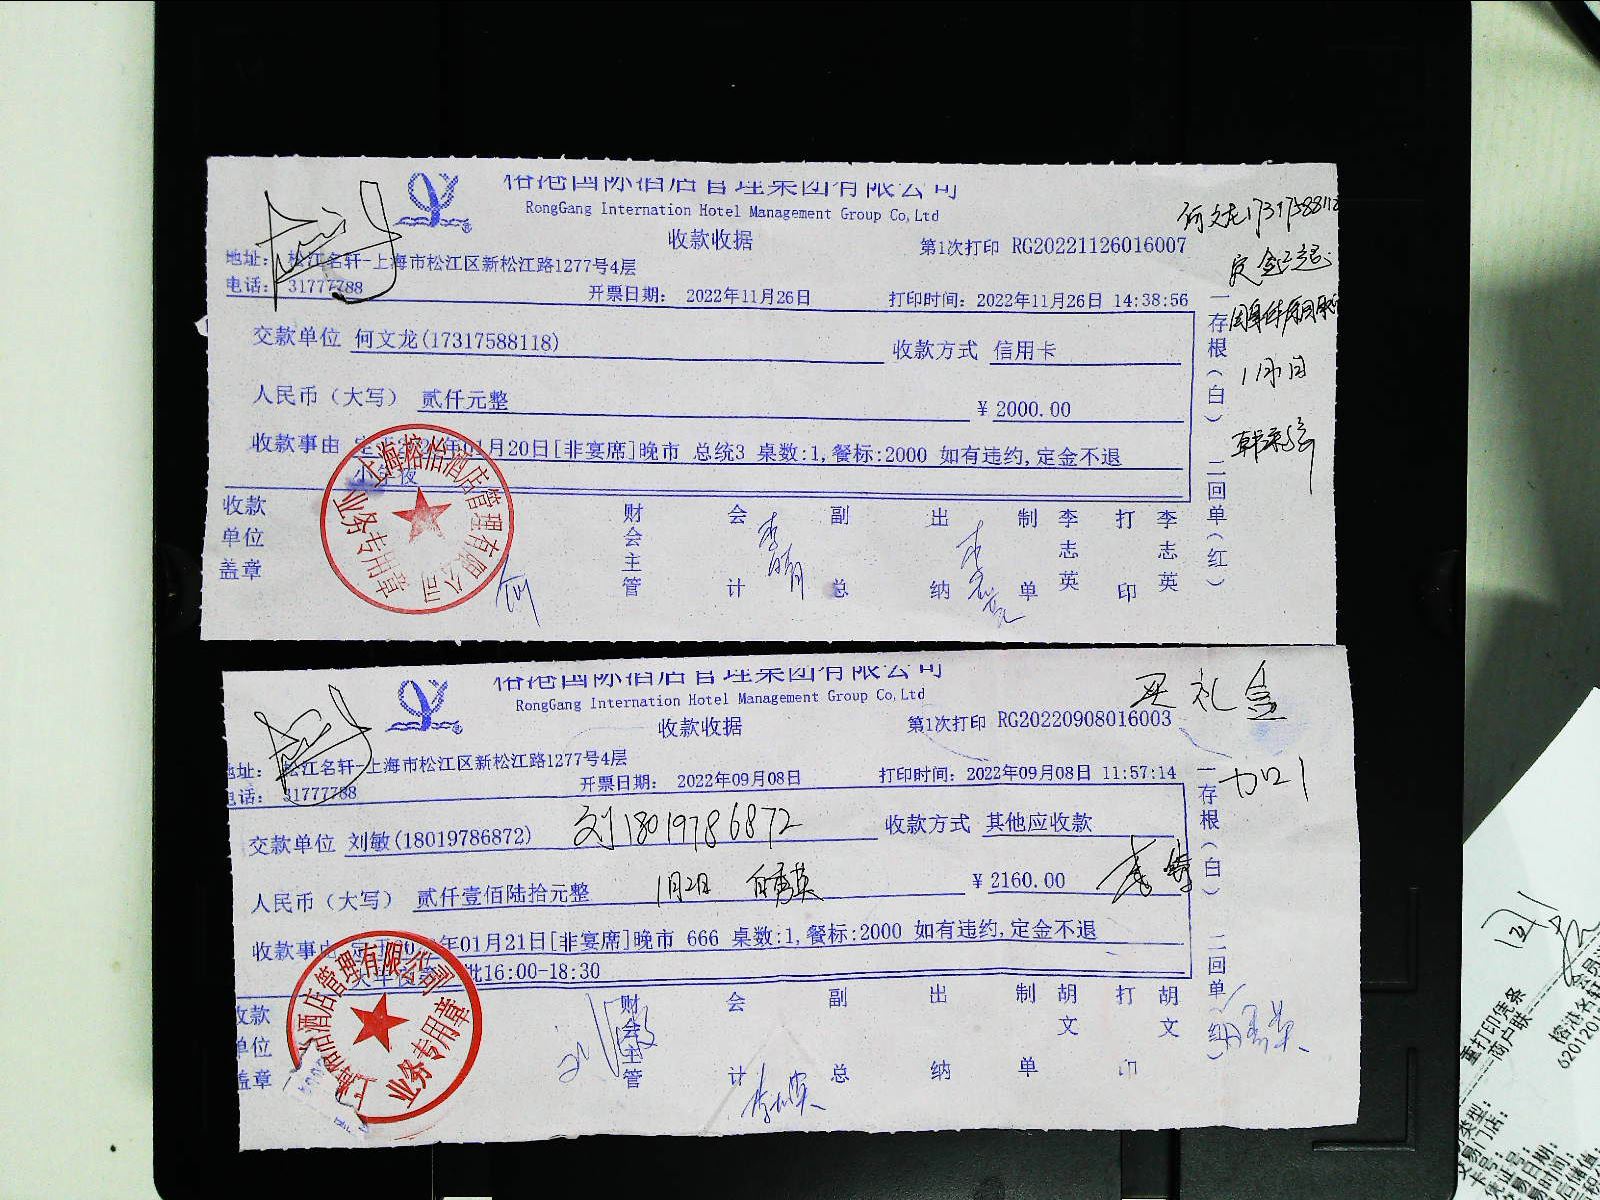 榕港国际酒店管理集团有限公司
RongGang Internation Hotel Management Group Co,Ltd
收款收据
第1次打印 RG20221126016007
地址: 松江名轩-上海市松江区新松江路1277号4层
电话: 31777788
开票日期: 2022年11月26日
打印时间: 2022年11月26日 14:38:56
何文龙17317588118
定金已退
1月1日
交款单位 何文龙(17317588118)
收款方式 信用卡
人民币（大写） 贰仟元整
¥ 2000.00
收款事由 定于2023年01月20日[非宴席]晚市 总统3 桌数:1,餐标:2000 如有违约,定金不退
小年夜
一存根(白) 二回单(红)
收款单位盖章
财会主管 会计 副总 出纳 制单 李志英 打印 李志英
上海榕怡酒店管理有限公司
业务专用章
何
榕港国际酒店管理集团有限公司
RongGang Internation Hotel Management Group Co,Ltd
收款收据
第1次打印 RG20220908016003
买礼盒
加1
地址: 松江名轩-上海市松江区新松江路1277号4层
电话: 31777788
开票日期: 2022年09月08日
打印时间: 2022年09月08日 11:57:14
交款单位 刘敏(18019786872)
刘18019786872
收款方式 其他应收款
人民币（大写） 贰仟壹佰陆拾元整
1月2日
¥ 2160.00
收款事由 定于2023年01月21日[非宴席]晚市 666 桌数:1,餐标:2000 如有违约,定金不退
大年夜第 批16:00-18:30
一存根(白) 二回单(红)
收款单位盖章
财会主管 会计 副总 出纳 制单 胡文 打印 胡文
酒店管理有限公司
业务专用章
刘敏
重打印凭条
商户联
会员
榕港名轩